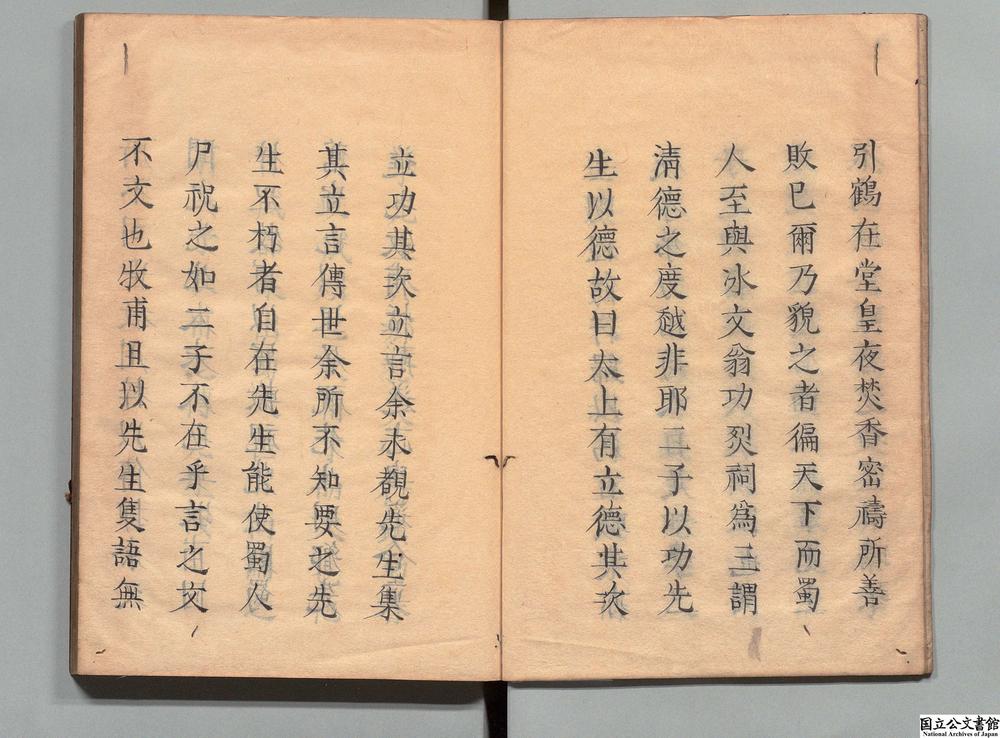 引鶴在堂皇夜焚香密禱所善
敗已爾乃貌之者徧天下而蜀
人至與冰文翁功烈祠為三謂
清德之度越非耶二子以功先
生以德故曰太上有立德其次
立功其次立言余未覩先生集
其立言傳世余所不知要之先
生不朽者自在先生能使蜀人
尸祝之如二子不在乎言之文
不文也牧甫且以先生隻語無
国立公文書館
National Archives of Japan